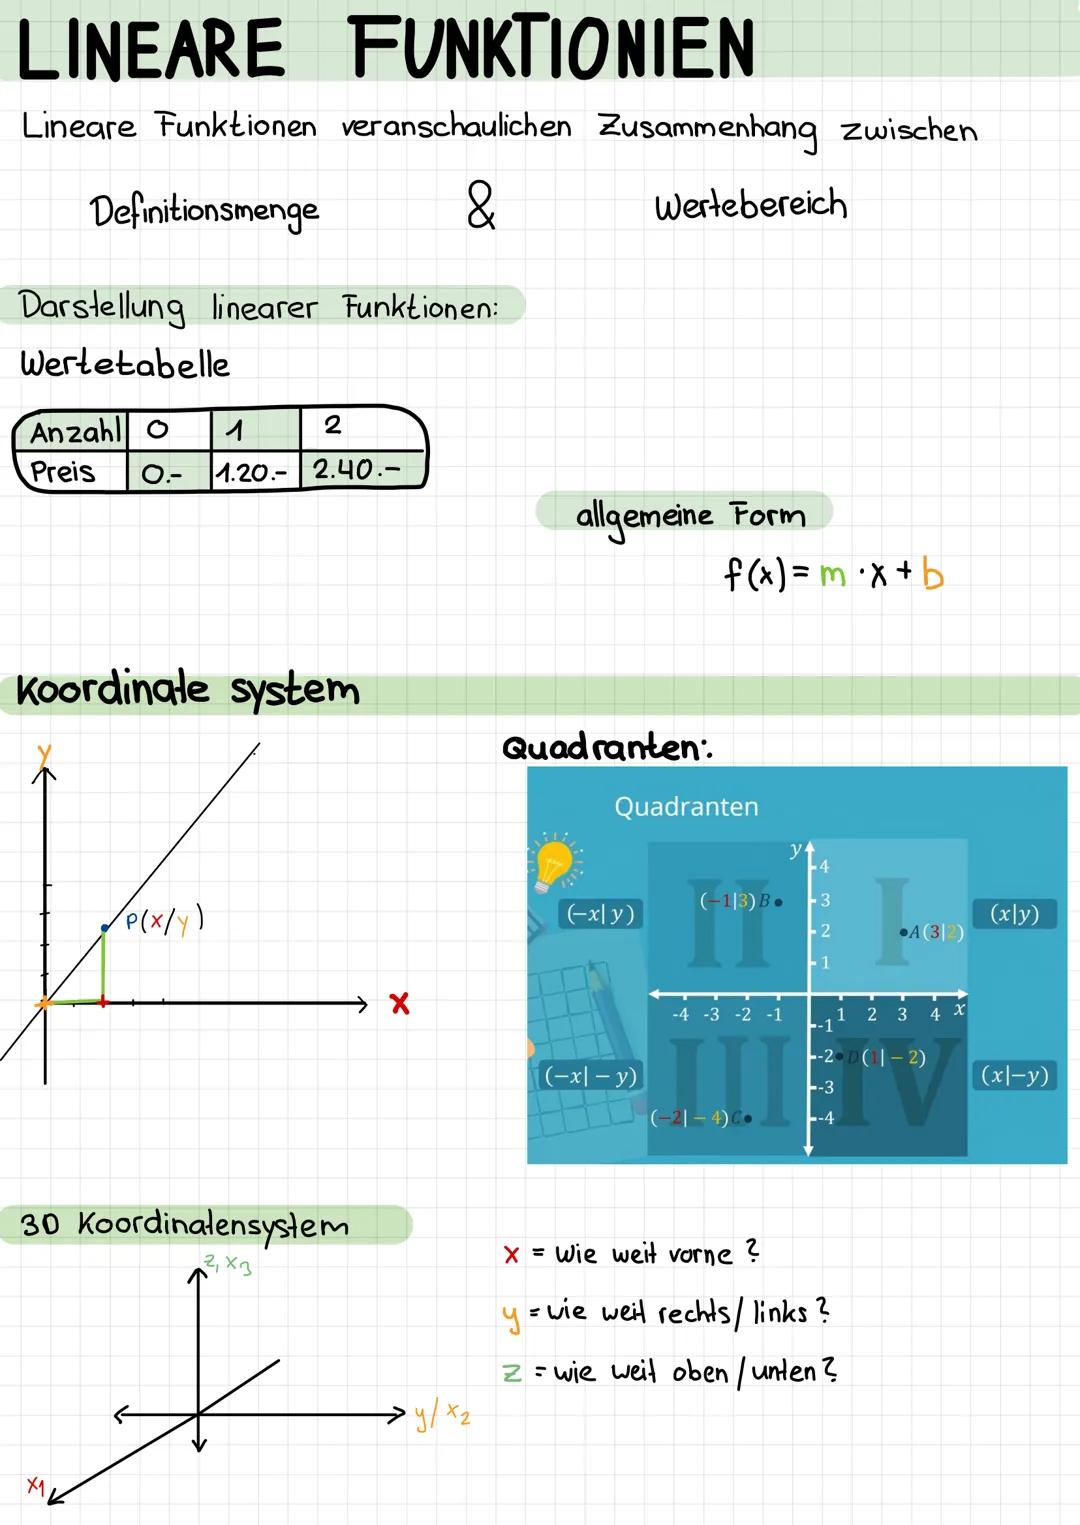 LINEARE FUNKTIONIEN
Lineare Funktionen veranschaulichen Zusammenhang zwischen
Definitionsmenge & Wertebereich
Darstellung linearer Funktionen:
Wertetabelle
Anzahl 0 1 2
Preis 0.- 1.20.- 2.40.-
allgemeine Form
f(x) = m · x + b
Koordinate system
y
P(x/y)
x
Quadranten:
Quadranten
y
4
3
2
1
II
I
(-x|y)
(-1|3) B
A(3|2)
(x|y)
-4 -3 -2 -1 1 2 3 4 x
-1
-2
-3
-4
III
IV
(-x|-y)
D(1|-2)
(x|-y)
(-2|-4) C
3D Koordinatensystem
z, x3
y/x2
x1
x = wie weit vorne ?
y = wie weit rechts/ links ?
z = wie weit oben / unten ?